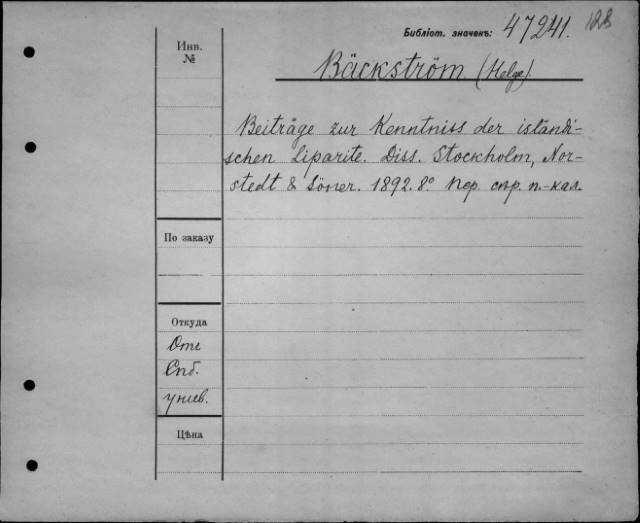 Библіот. значекъ: 47241. 128
Инв. №
Bäckström (Helge).
Beiträge zur Kenntniss der isländi-
schen Liparite. Diss. Stockholm, Nor-
stedt & Söner. 1892. 8° пер. стр. п.-кал.
По заказу
Откуда
Отъ
Спб.
унив.
Цѣна